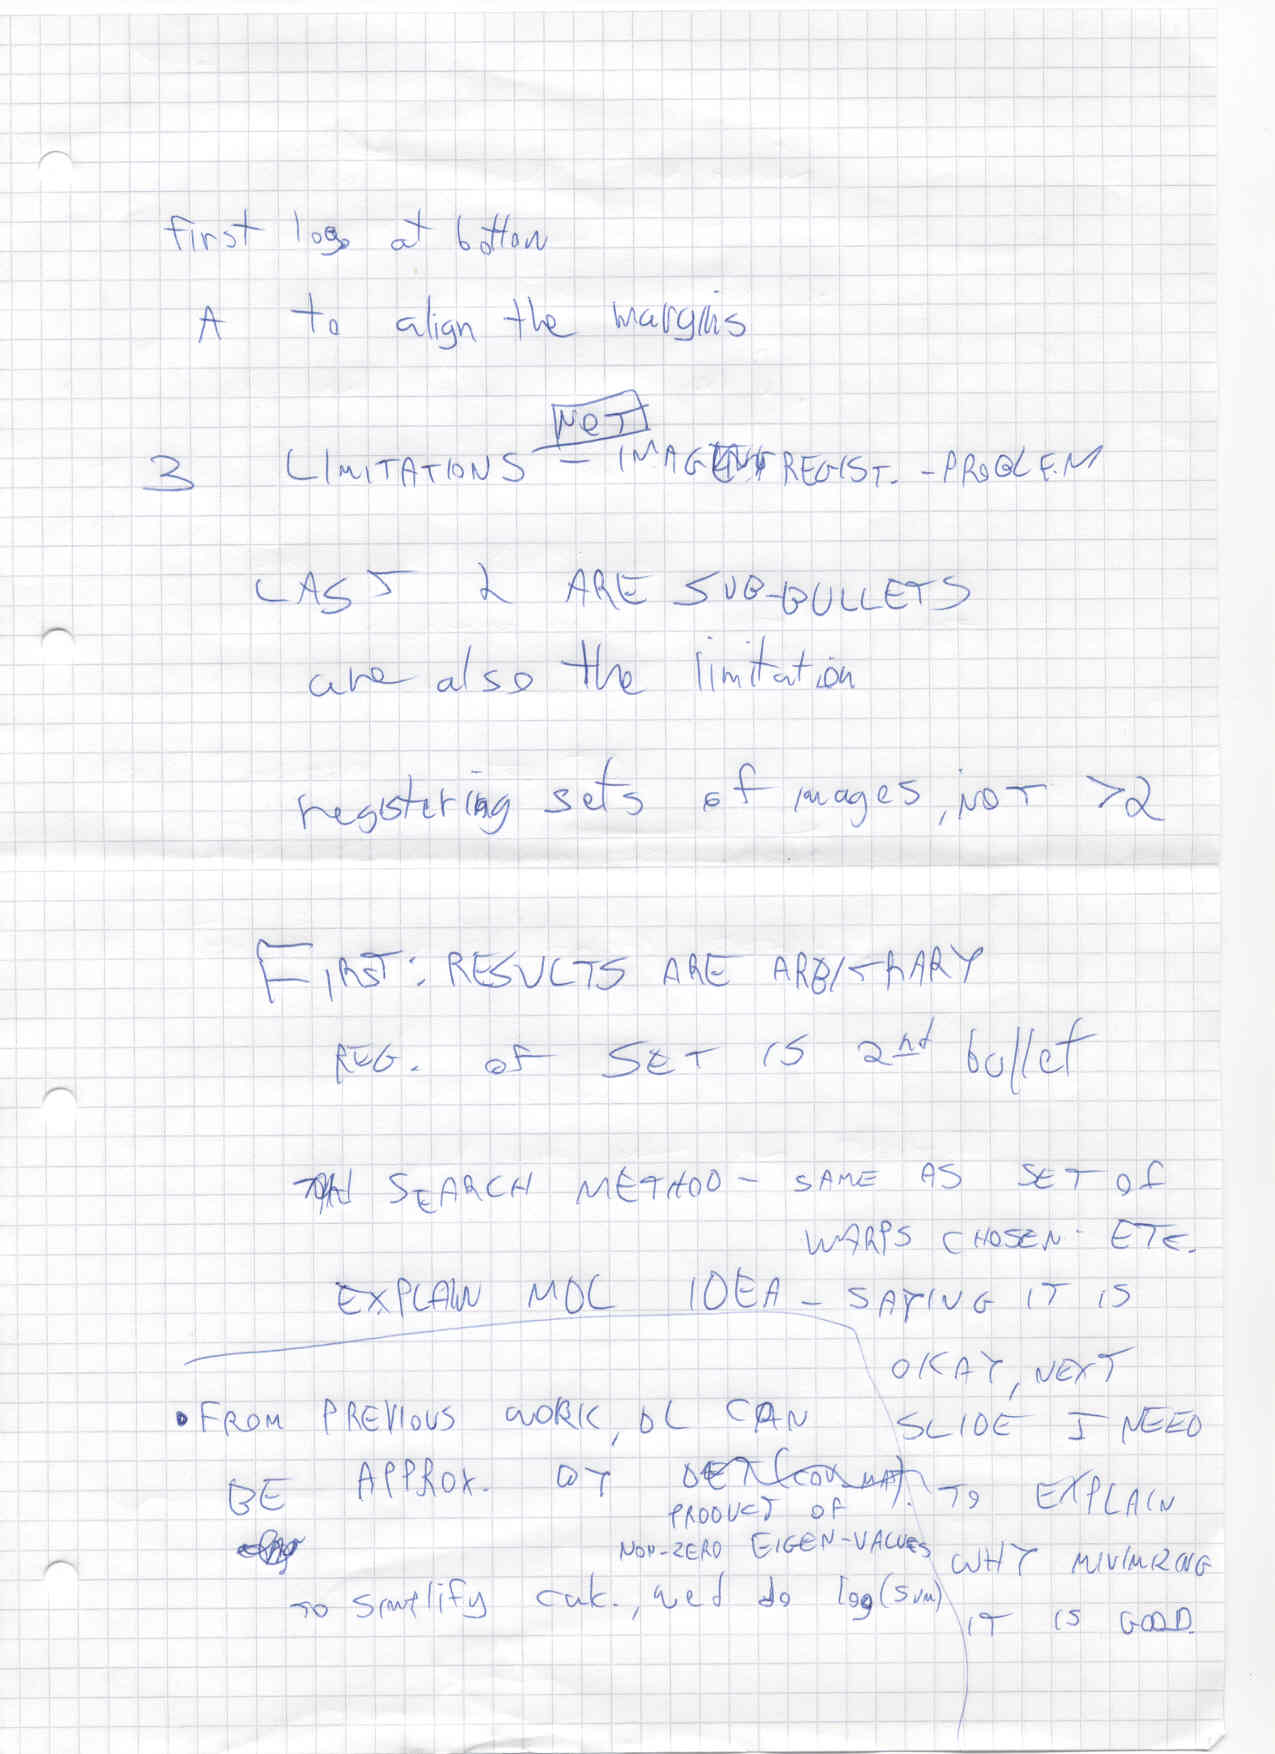 first logo at bottom
A to align the margins
NOT
3 LIMITATIONS - IMAGE REGIST. - PROBLEM
LAST 2 ARE SUB-BULLETS
are also the limitation
registering sets of images, NOT >2
FIRST: RESULTS ARE ARBITRARY
REG. OF SET IS 2nd bullet
SEARCH METHOD - SAME AS SET OF
WARPS CHOSEN. ETC.
EXPLAIN MDL IDEA - SAYING IT IS
OKAY, NEXT
SLIDE I NEED
TO EXPLAIN
WHY MINIMIZING
IT IS GOOD.
• FROM PREVIOUS WORK, DL CAN
BE APPROX. BY DET(COV MAT).
PRODUCT OF
NON-ZERO EIGEN-VALUES
TO simplify calc., we'd do log(sum)